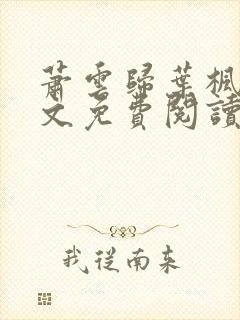 蕭雲歸葉楓
文免費閱讀
我從南來